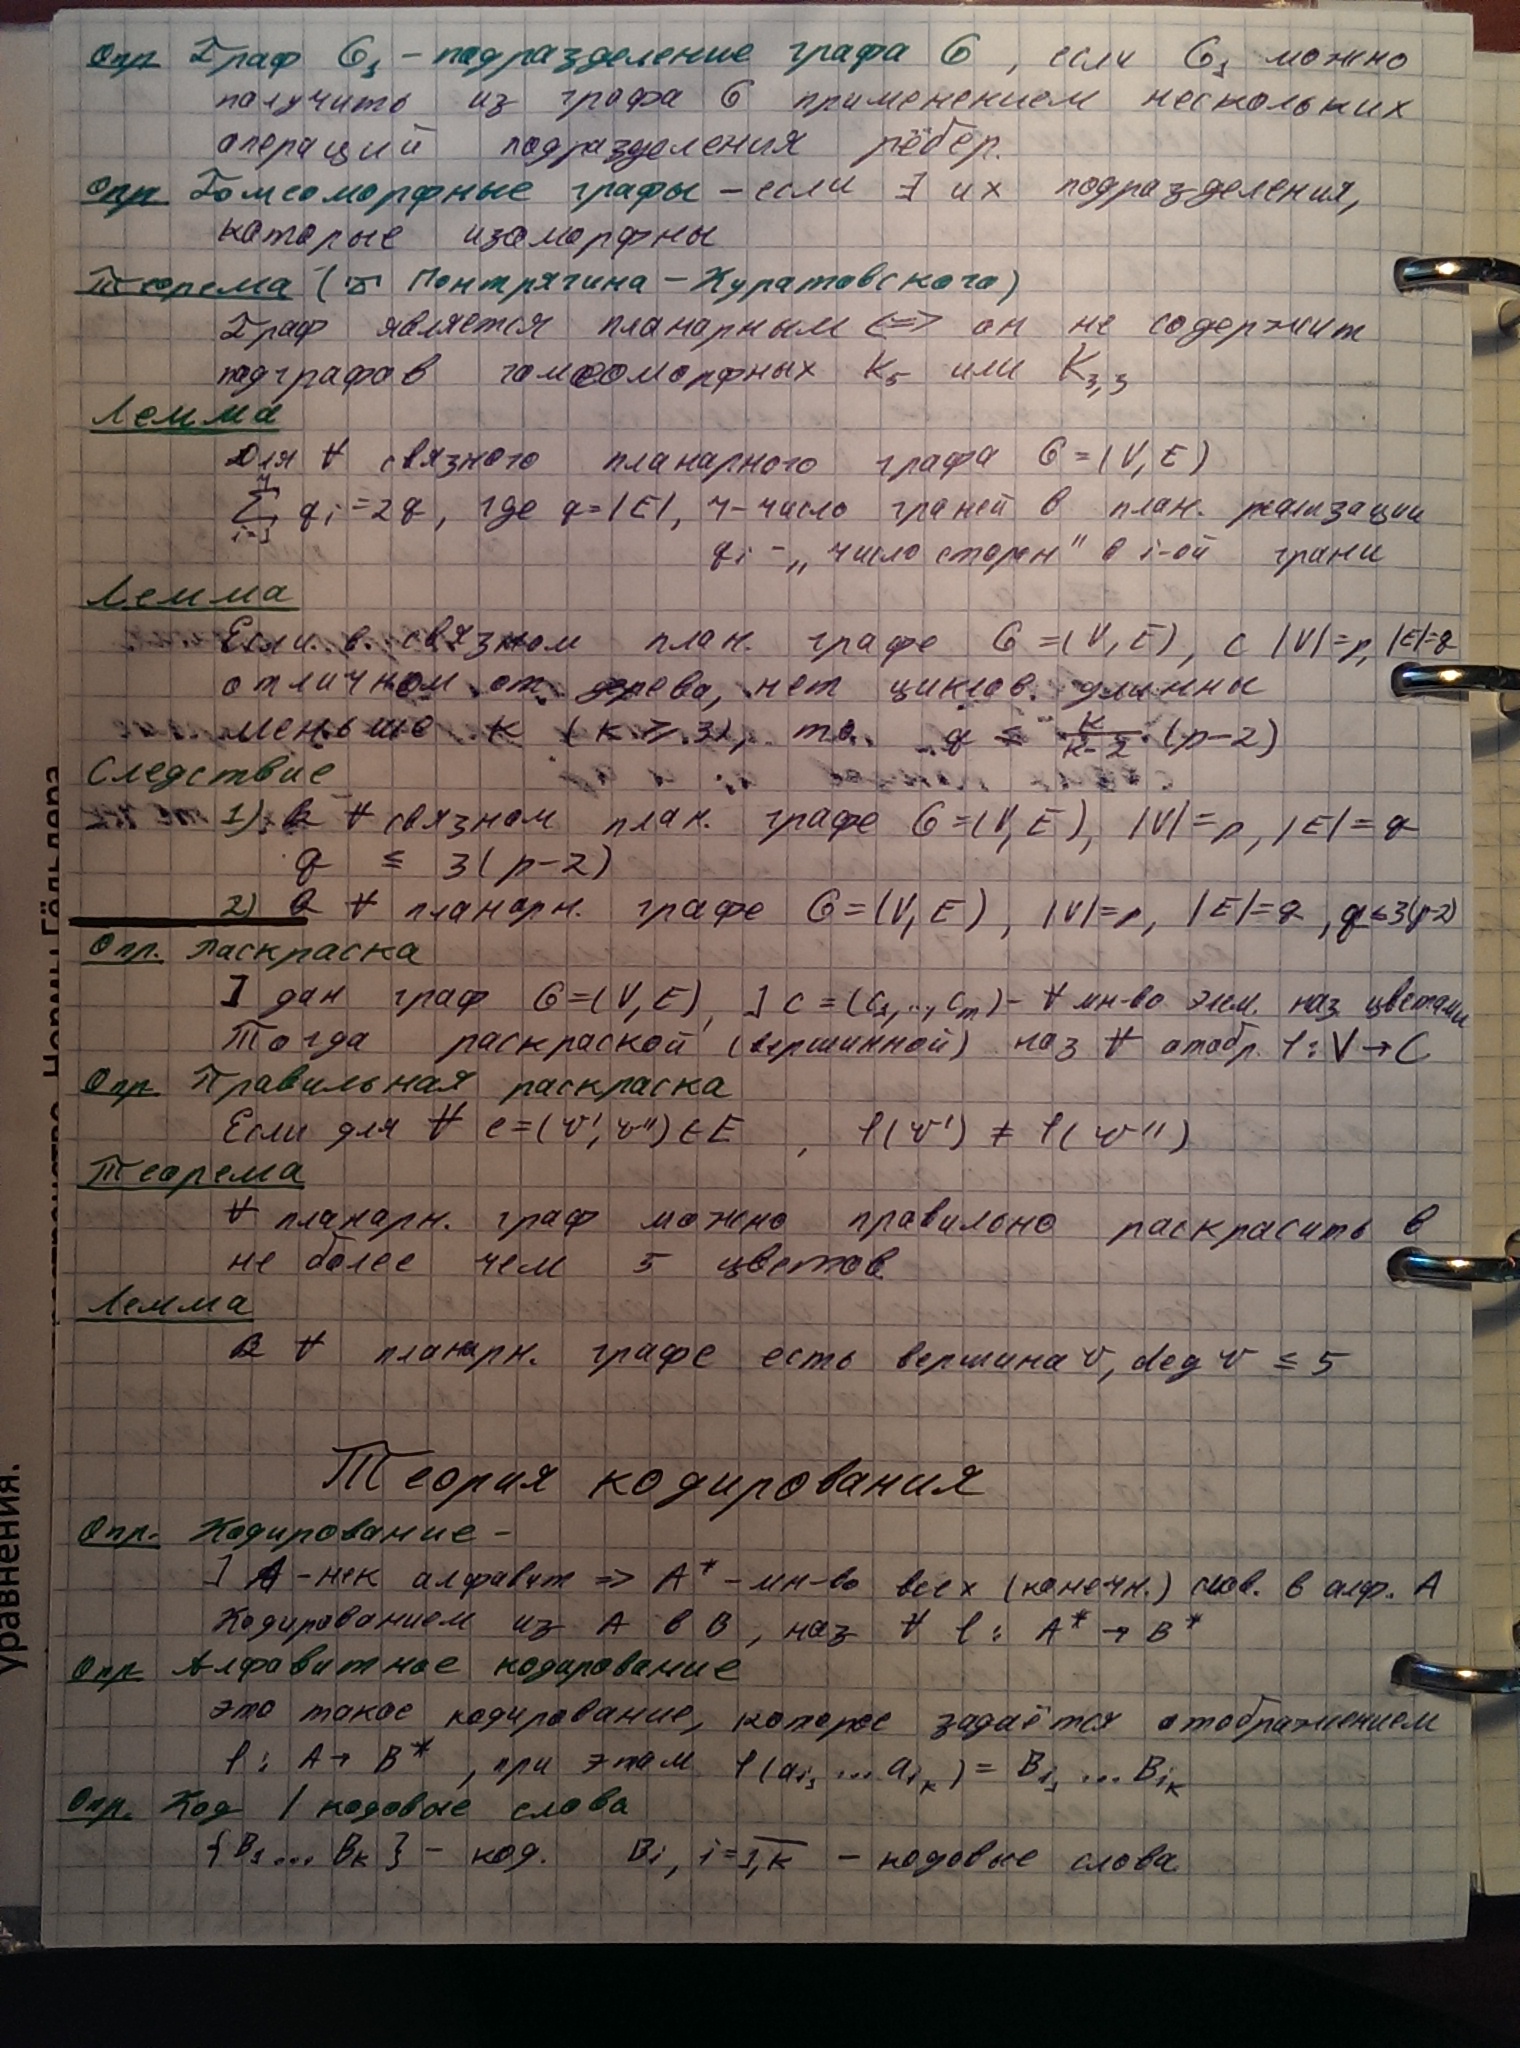 Опр Граф G₁ – подразделение графа G, если G₁ можно
получить из графа G применением нескольких
операций подразделения рёбер.
Опр Гомеоморфные графы – если ∃ их подразделения,
которые изоморфны
Теорема (Понтрягина – Куратовского)
Граф является планарным <=> он не содержит
подграфов гомеоморфных K₅ или K₃,₃
Лемма
Для ∀ связного планарного графа G = (V, E)
∑ᵢ₌₁ʳ qᵢ = 2q, где q = |E|, r – число граней в план. реализации
qᵢ – „число сторон" в i-ой грани
Лемма
Если в связном план. графе G = (V, E), с |V| = p, |E| = q
отличном от древа, нет циклов длинны
меньше k (k ≥ 3), то q ≤ k/(k-2) (p-2)
Следствие
1) В ∀ связном план. графе G = (V, E), |V| = p, |E| = q
q ≤ 3(p-2)
2) В ∀ планарн. графе G = (V, E), |V| = p, |E| = q, q ≤ 3(p-2)
Опр. Раскраска
] дан граф G = (V, E), ] C = (c₁, .., cₘ) – ∀ мн-во элем. наз цветами
Тогда раскраской (вершинной) наз ∀ отобр. f: V → C
Опр Правильная раскраска
Если для ∀ e = (v', v'') ∈ E , f(v') ≠ f(v'')
Теорема
∀ планарн. граф можно правильно раскрасить в
не более чем 5 цветов
Лемма
В ∀ планарн. графе есть вершина v, deg v ≤ 5
Теория кодирования
Опр. Кодирование –
] A – нек алфавит => A* – мн-во всех (конечн.) слов. в алф. A
Кодированием из A в B, наз ∀ f: A* → B*
Опр Алфавитное кодирование
это такое кодирование, которое задаётся отображением
f: A → B*, при этом f(aᵢ₁ ... aᵢₖ) = Bᵢ₁ ... Bᵢₖ
Опр. Код / кодовые слова
{B₁ ... Bₖ} – код. Bᵢ, i = 1,k – кодовые слова
уравнения.